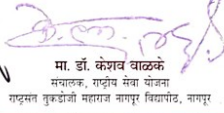 मा. डॉ. केशव वाळके
संचालक, राष्ट्रीय सेवा योजना
राष्ट्रसंत तुकडोजी महाराज नागपूर विद्यापीठ, नागपूर